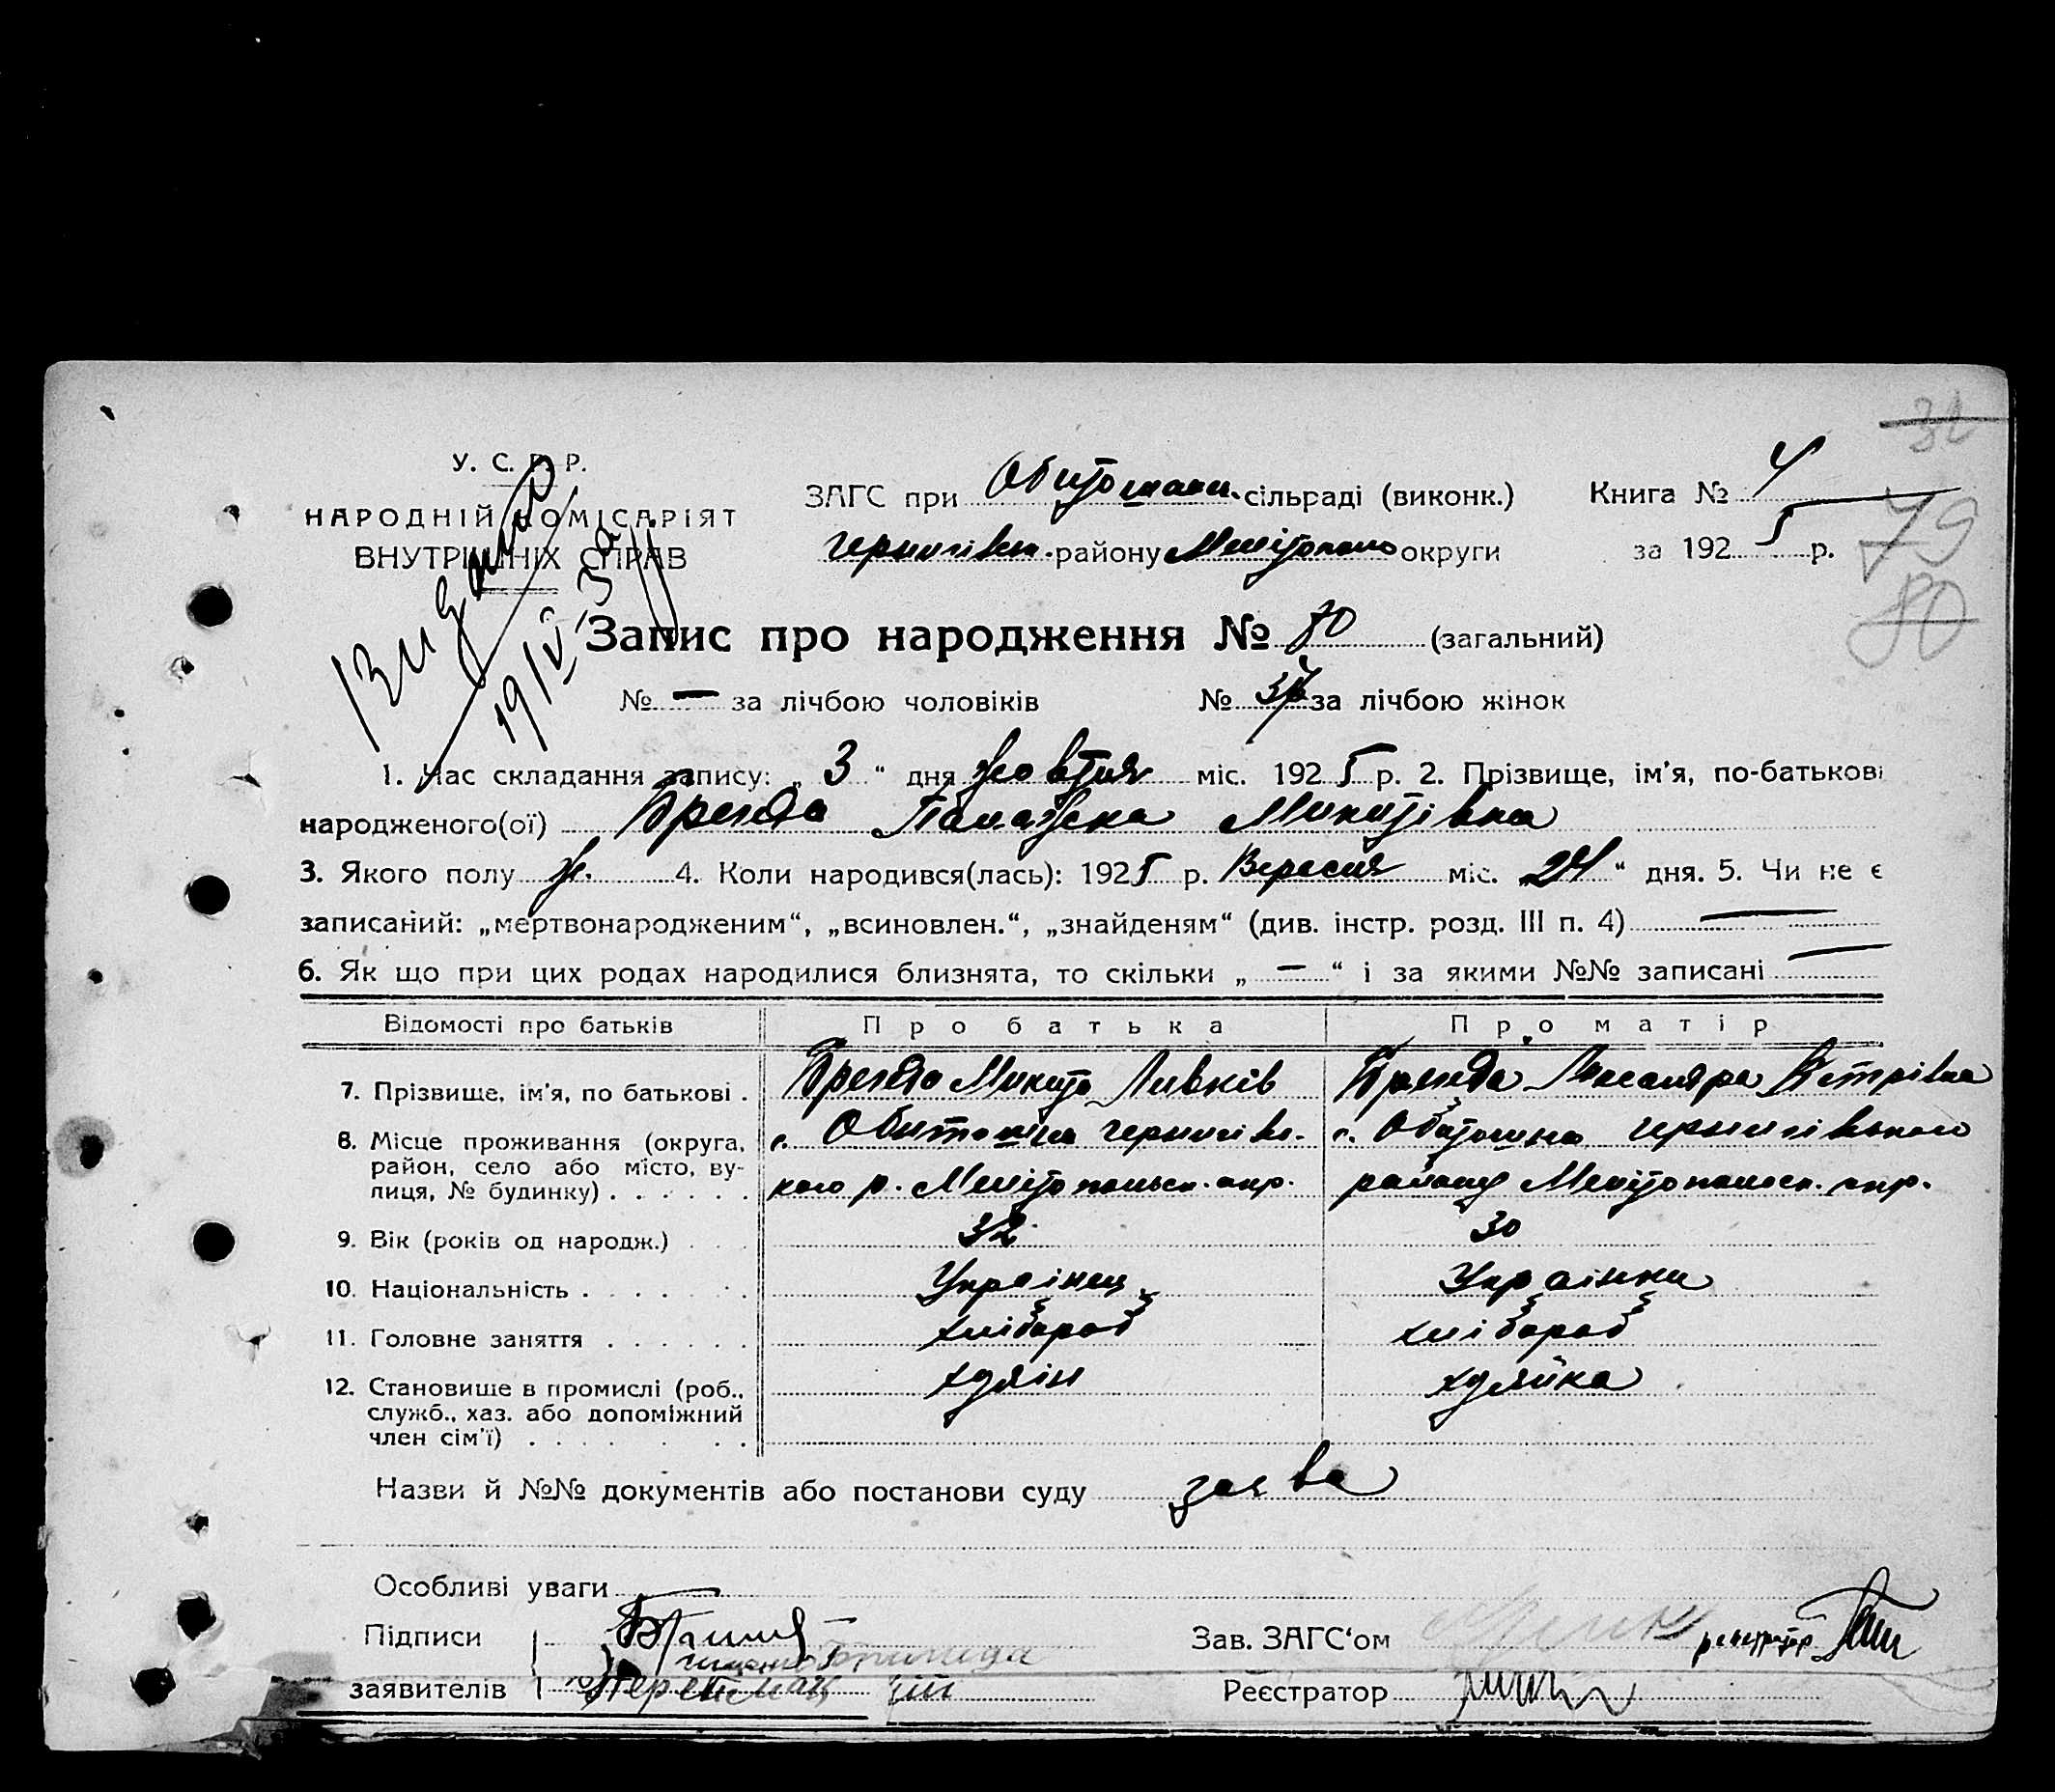 32
У. С. Р. Р.
НАРОДНІЙ КОМІСАРІЯТ
ВНУТРІШНІХ СПРАВ
ЗАГС при Обитошан. сільраді (виконк.)
Книга № 4
Чернигівск. району Мелітополь округи
за 1925 р.
79
80
Видано
Запис про народження № 80 (загальний)
№ — за лічбою чоловіків № 37 за лічбою жінок
1. Час складання запису: „ 3 “ дня жовтня міс. 1925 р. 2. Прізвище, ім'я, по-батькові
народженого(ої) Микитівна
3. Якого полу ж. 4. Коли народився(лась): 1925 р. Вересня міс. „24“ дня. 5. Чи не є
записаний: „мертвонародженим“, „всиновлен.“, „знайденям“ (див. інстр. розд. III п. 4) —
6. Як що при цих родах народилися близнята, то скільки „ — “ і за якими №№ записані —
Відомості про батьків Про батька Про матір
7. Прізвище, ім'я, по батькові . Микита
8. Місце проживання (округа, район, село або місто, вулиця, № будинку)
с. Обиточна Чернигівського р. Мелітопольск. окр.
с. Обиточна Чернигівського району Мелітопольск. окр.
9. Вік (років од народж.) 32 30
10. Національність Українец Українка
11. Головне заняття хлібороб хлібороб
12. Становище в промислі (роб., служб., хаз. або допоміжний член сім'ї) хдяїн хдяйка
Назви й №№ документів або постанови суду заява
Особливі уваги —
Підписи
Зав. ЗАГС‘ом
заявителів
Реєстратор